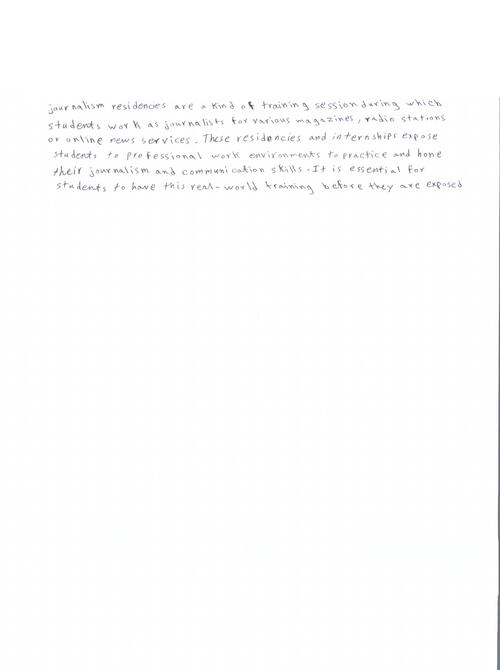 journalism residencies are a kind of training session during which
students work as journalists for various magazines, radio stations
or online news services. These residencies and internships expose
students to professional work environments to practice and hone
their journalism and communication skills. It is essential for
students to have this real-world training before they are exposed